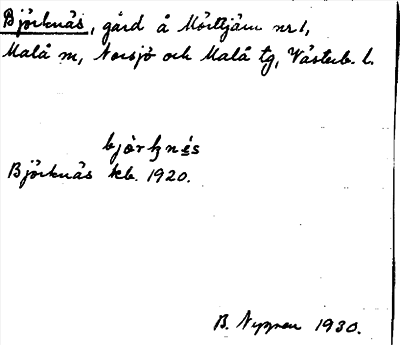 Björknäs, gård å Mörttjärn nr 1,
Malå sn, Norsjö och Malå tg, Västerb. l.
bjòrknés
Björknäs kb. 1920.
B. Nygren 1930.